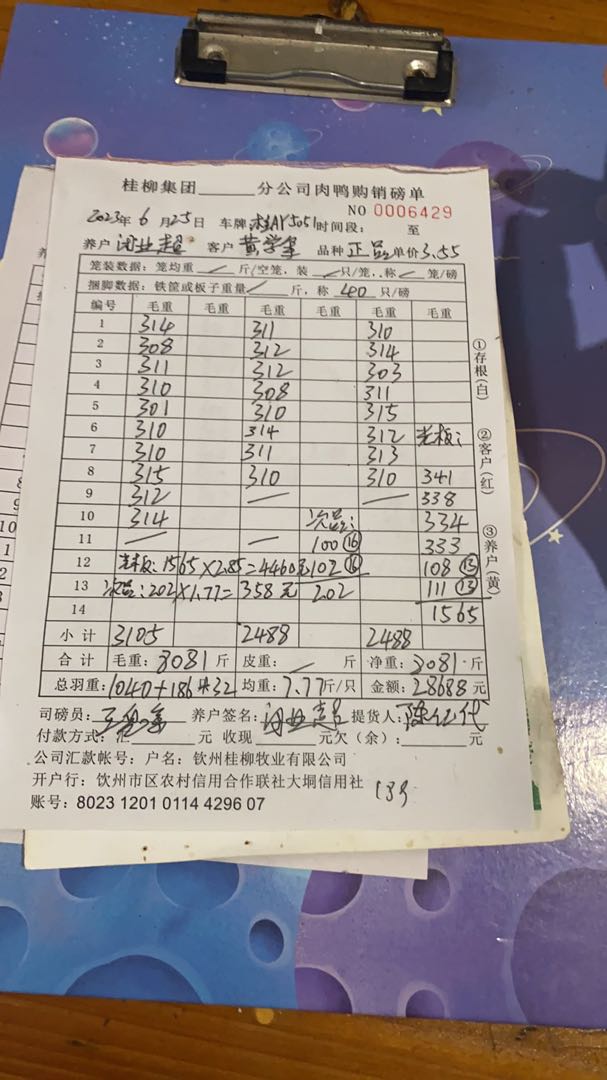 桂柳集团______分公司肉鸭购销磅单
NO 0006429
2023年6月25日 车牌 桂AY5051 时间段： 至
养户 闭业超 客户 黄学 品种 正品 单价 3.55
笼装数据：笼均重 / 斤/空笼，装 / 只/笼，称 / 笼/磅
捆脚数据：铁筐或板子重量 / 斤，称 40 只/磅
编号 毛重 毛重 毛重 毛重 毛重 毛重
1 314 311 310
2 308 312 314
3 311 312 303
4 310 308 311
5 301 310 315
6 310 314 312 光板：
7 310 311 313
8 315 310 310 341
9 312 — — 338
10 314 次品： 334
11 — — 100⑯ 333
12 光板：1565×2.85=4460元 102⑯ 108⑬
13 次品：202×1.77=358元 202 111⑬
14 1565
小计 3105 2488 2488
合计 毛重：8081斤 皮重： / 斤 净重：8081斤
总羽重：1040+186+32 均重：7.77斤/只 金额：28688元
司磅员： 养户签名：闭业超 提货人：陈
付款方式：______元 收现______元欠（余）：______元
公司汇款帐号：户名：钦州桂柳牧业有限公司
开户行：钦州市区农村信用合作联社大垌信用社
139
账号：8023 1201 0114 4296 07
①存根(白)
②客户(红)
③养户(黄)